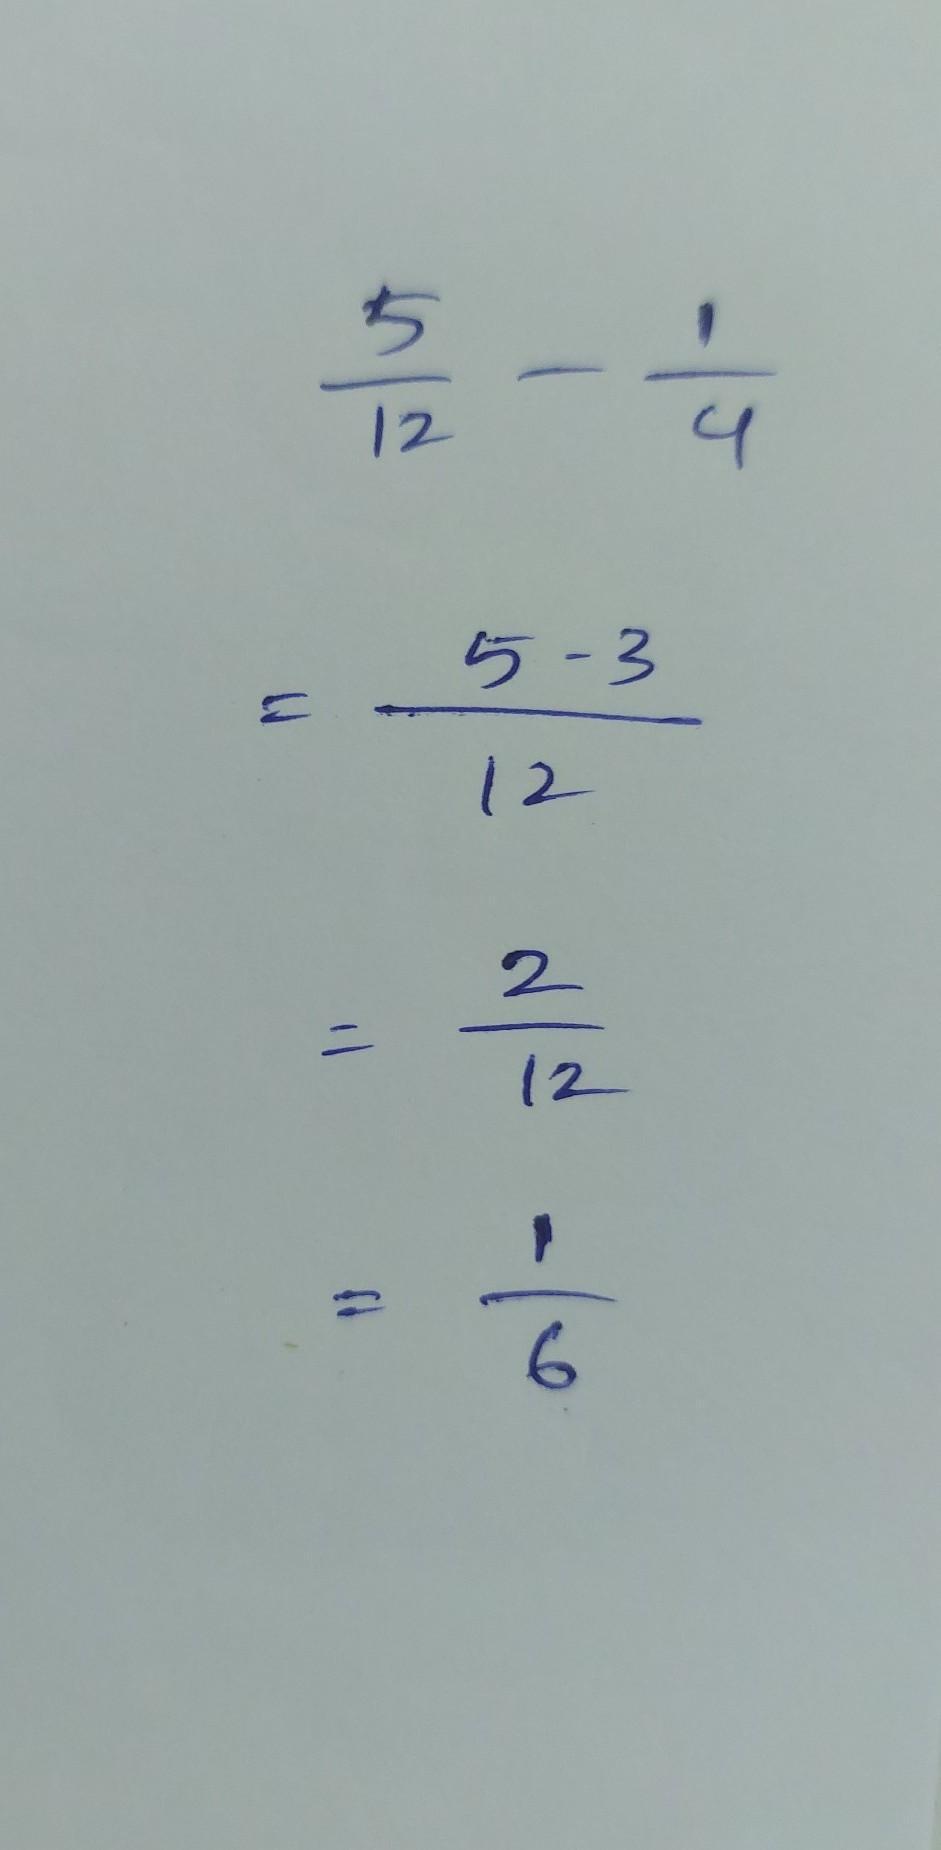 5/12 - 1/4
= 5-3/12
= 2/12
= 1/6